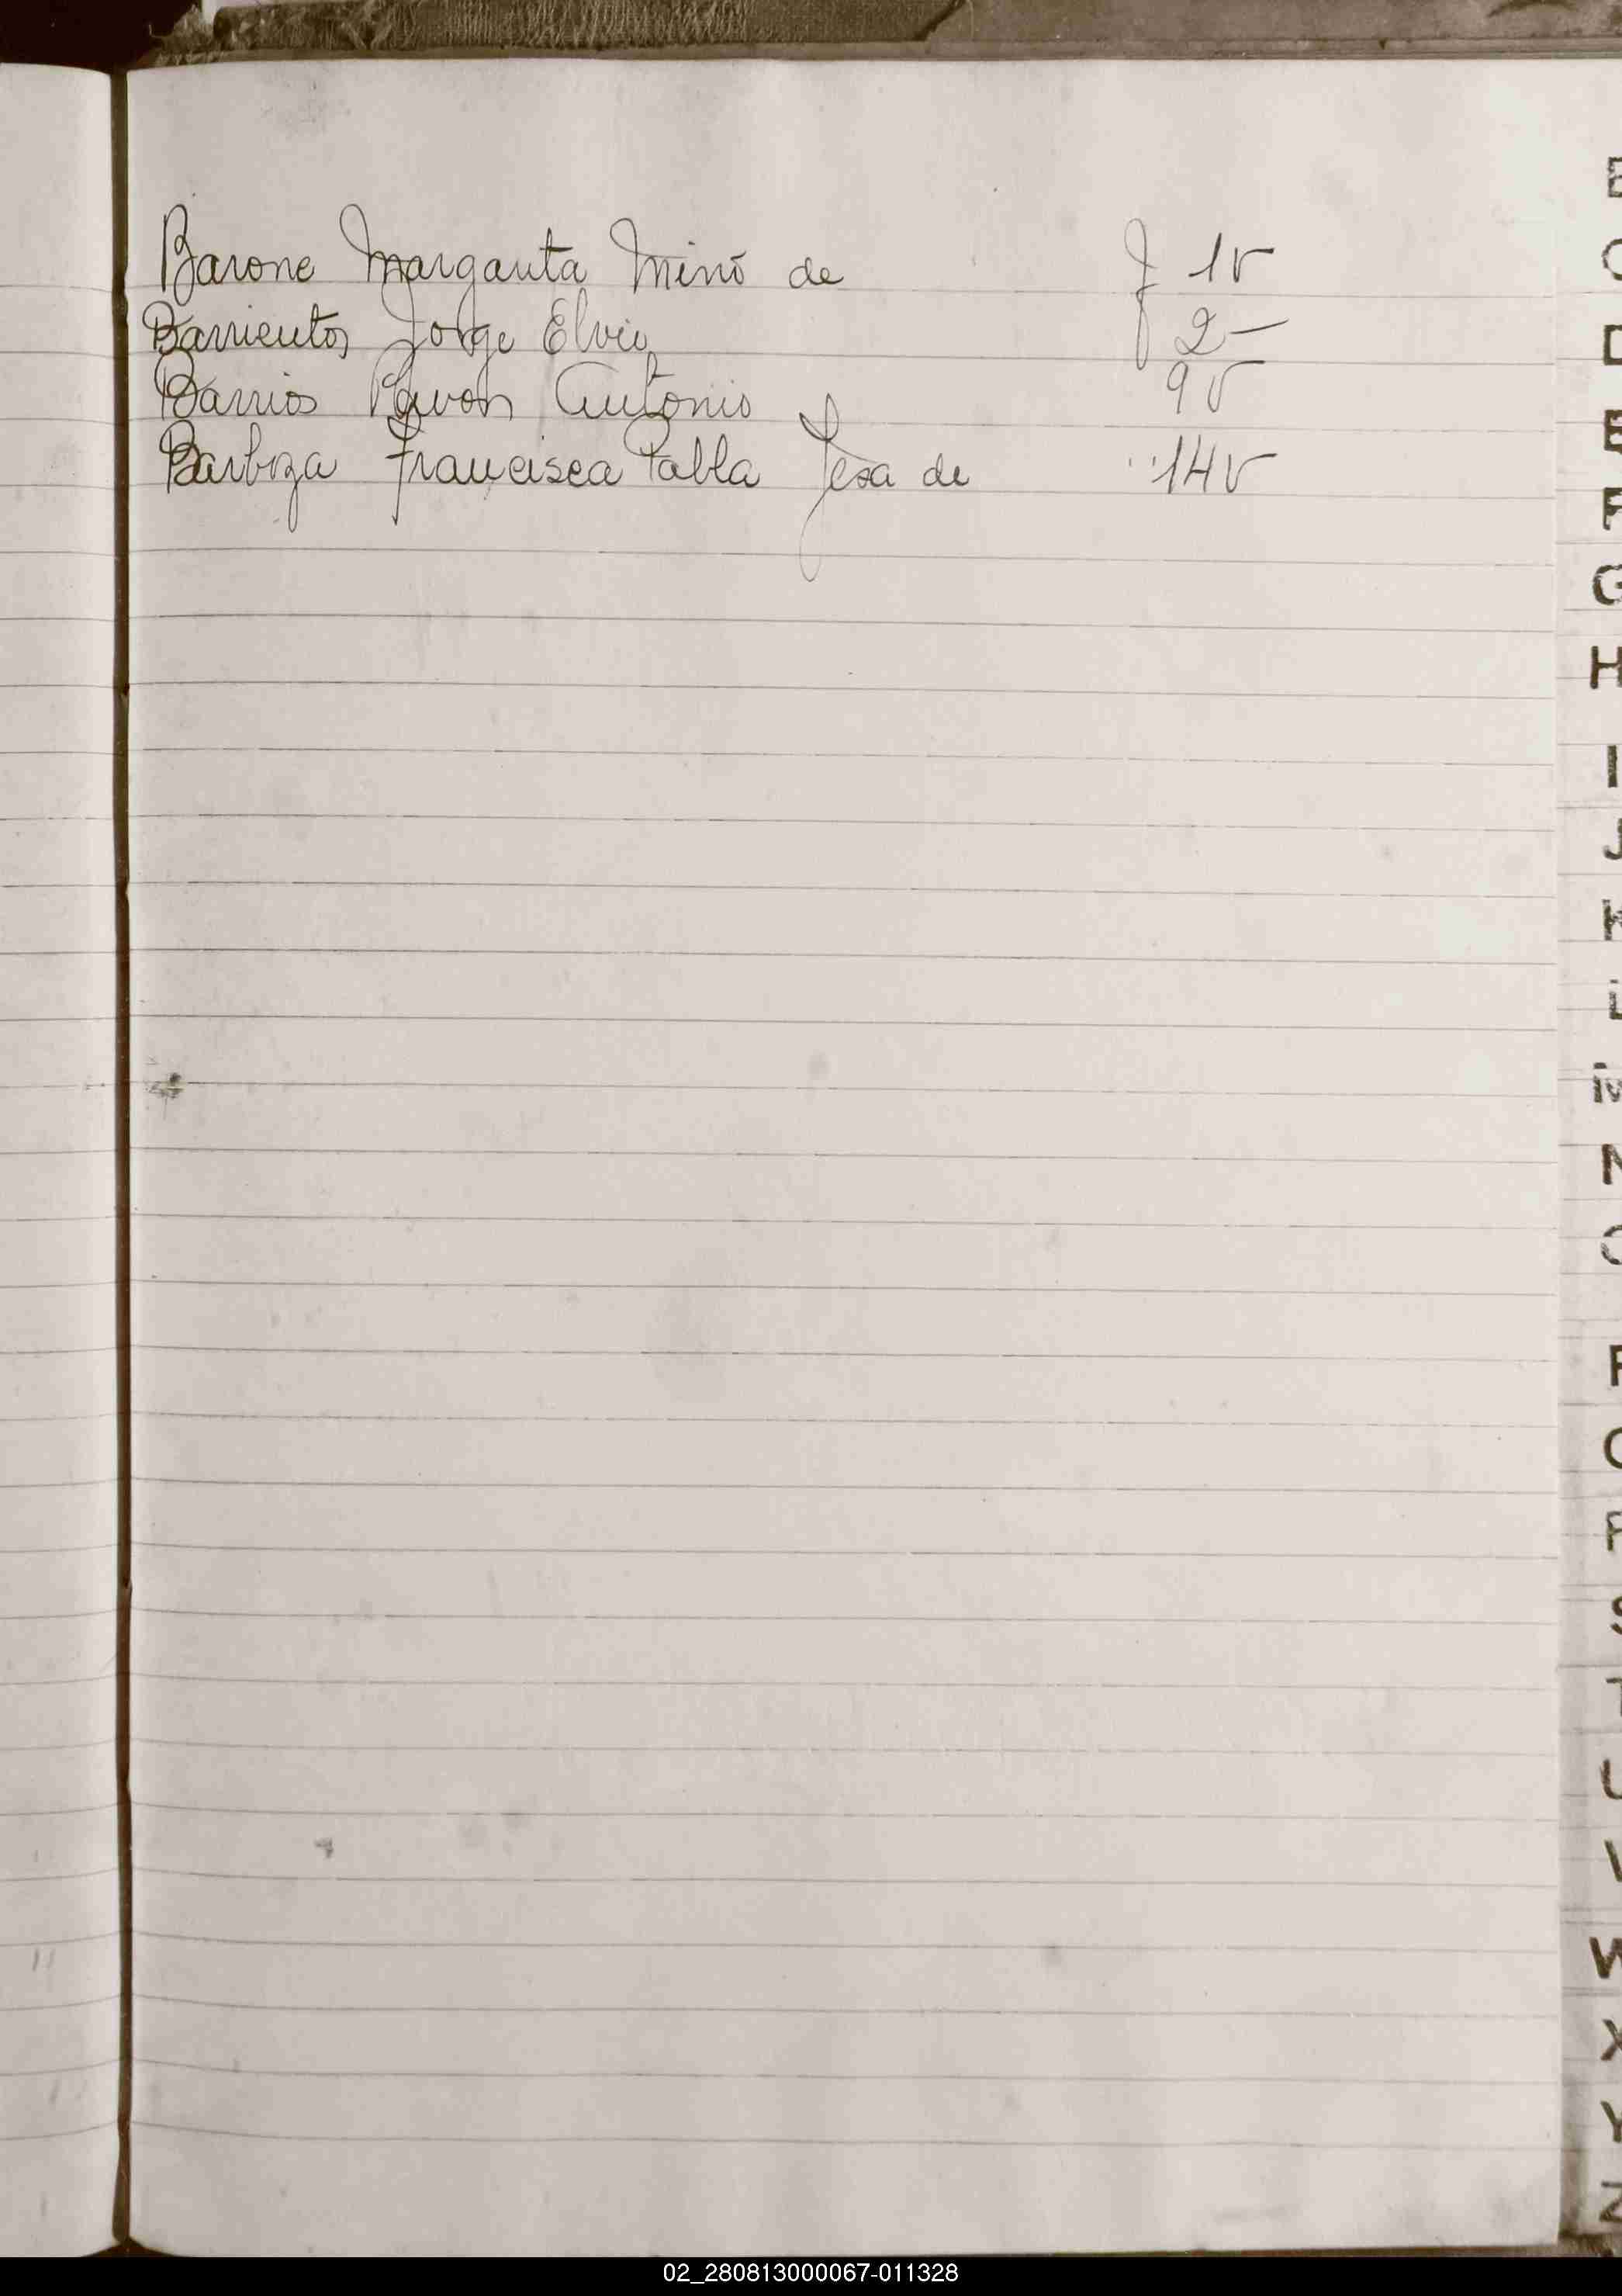 Barone Margarita Miño de f 1v
Barrientos Jorge Elvio f 2—
Barrios Pavon Antonio 9v
Barboza Francisca Pabla Jesa de " 14v
B
C
D
E
F
G
H
I
J
K
L
M
N
O
P
Q
R
S
T
U
V
W
X
Y
Z
02_280813000067-011328